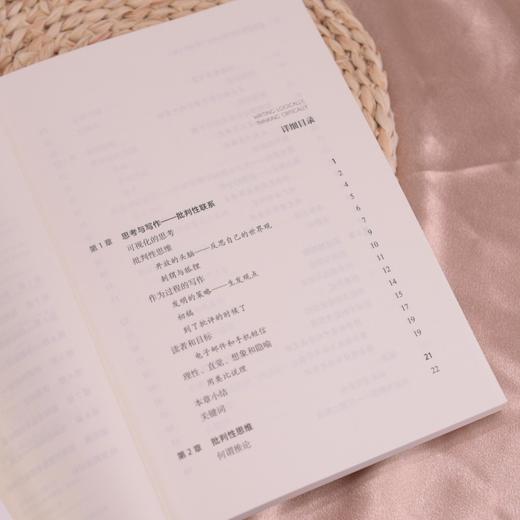 WRITING LOGICALLY
THINKING CRITICALLY
详细目录
第1章 思考与写作——批判性联系 1
可视化的思考 2
批判性思维 4
开放的头脑——反思自己的世界观 5
刺猬与狐狸 7
作为过程的写作 7
发明的策略——生发观点 9
初稿 10
到了批评的时候了
读者和目标 12
电子邮件和手机短信
理性、直觉、想象和隐喻 15
用类比说理 17
本章小结 19
关键词 19
第2章 批判性思维 21
何谓推论 22